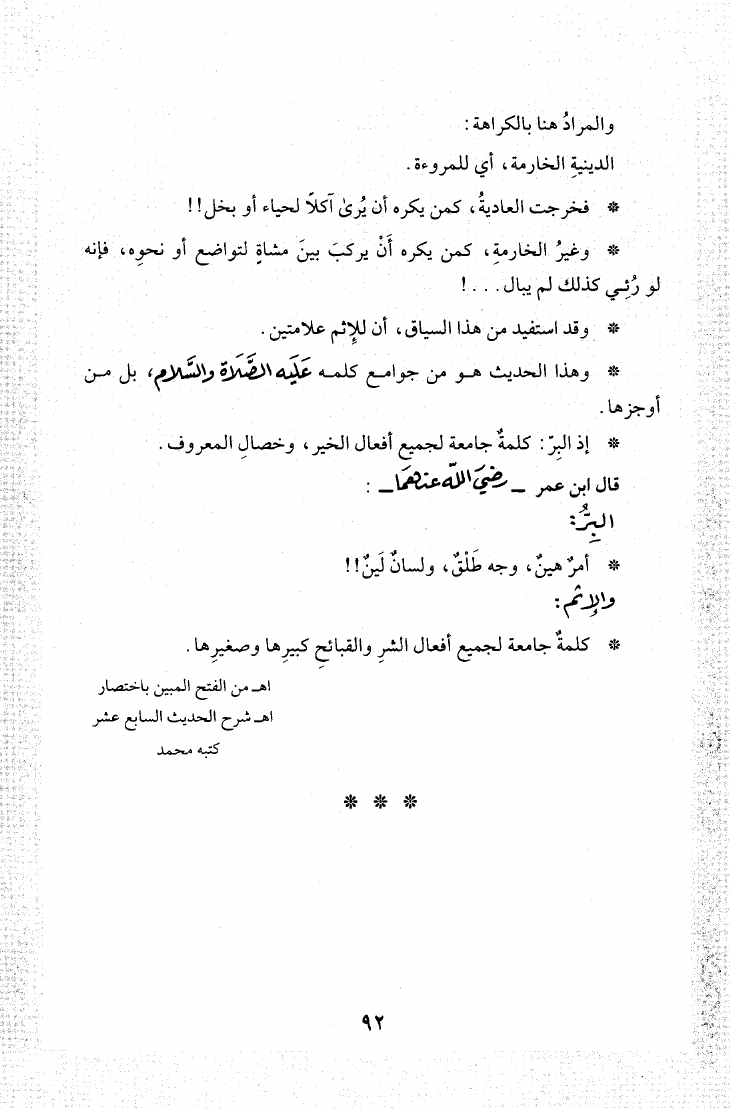 والمرادُ هنا بالكراهة:
الدينيةِ الخارمة، أي للمروءة.
* فخرجت العاديةُ، كمن يكره أن يُرىٰ آكلاً لحياء أو بخل!!
* وغيرُ الخارمةِ، كمن يكره أَنْ يركبَ بينَ مشاةٍ لتواضع أو نحوِه، فإنه
لو رُئِي كذلك لم يبال...!
* وقد استفيد من هذا السياق، أن للإثم علامتين.
* وهذا الحديث هـو من جوامـع كلمـه عَلَيه الصَّلَاة والسَّلام، بل مـن
أوجزها.
* إذ البِرّ: كلمةٌ جامعة لجميع أفعال الخير، وخصالِ المعروف.
قال ابن عمر ـ رضيَ اللّٰه عنهمَا ـ :
البِرُّ:
* أمرٌ هينٌ، وجه طَلْقٌ، ولسانٌ لَينٌ!!
والإثم:
* كلمةٌ جامعة لجميع أفعال الشرِ والقبائحِ كبيرِها وصغيرِها.
اهـ من الفتح المبين باختصار
اهـ شرح الحديث السابع عشر
كتبه محمد
* * *
٩٢